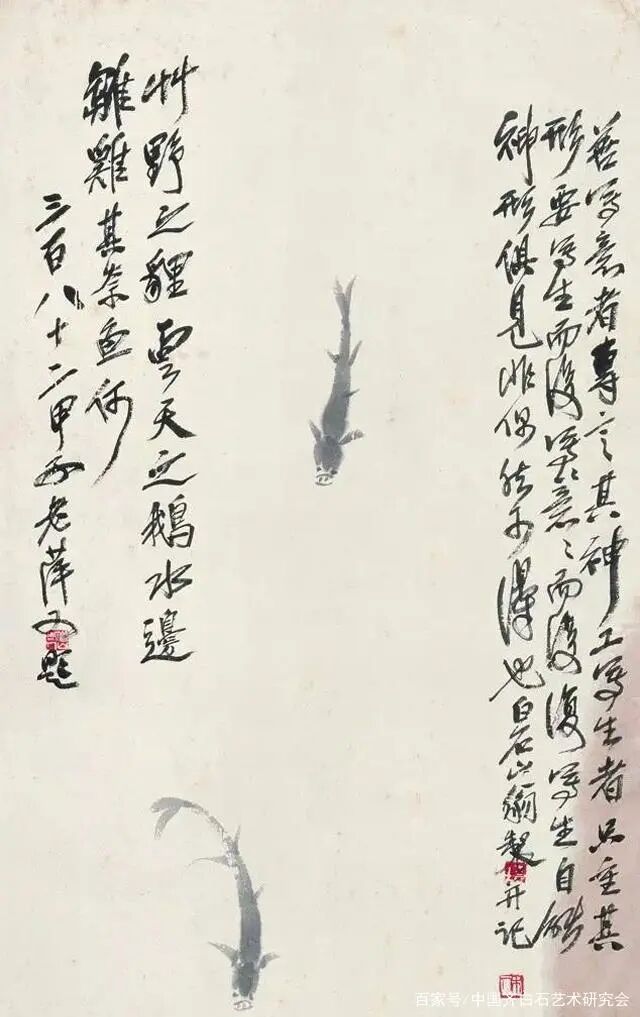 善写意者专言其神工写生者只重其
形要写生而后写意写意而后复写生自能
神形俱见非偶然可得也白石山翁制并记
艸野之貍雲天之鵝水邊
雛雞其奈魚何
三百八十二甲子老萍又題
百家号/中国齐白石艺术研究会